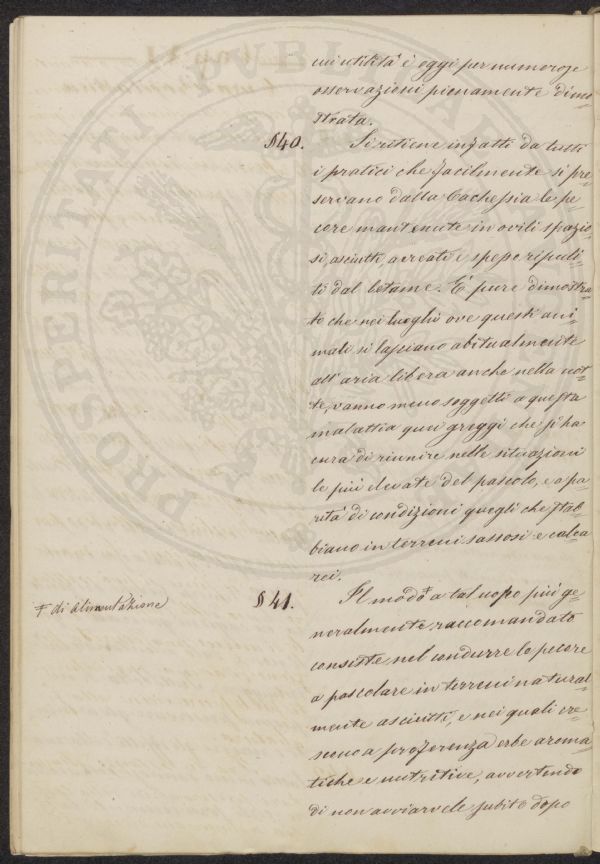 cui utilità è oggi per numerose
osservazioni pienamente dimo=
strata.
§40. Si ritiene infatti da tutti
i pratici che facilmente si pre=
servano dalla Cachessia le pe=
core mantenute in ovili spazio=
si, asciutti, aereati e spesso ripuli=
ti dal letame. È pure dimostra=
to che nei luoghi ove questi ani=
mali si lasciano abitualmente
all'aria libera anche nella not=
te, vanno meno soggetti a questa
malattia quei greggi che si ha
cura di riunire nelle situazioni
le più elevate del pascolo, e a pa=
rità di condizioni quegli che stab=
biano in terreni sassosi e calca=
rei.
§41. Il modo a tal uopo più ge=
di alimentazione
neralmente raccomandato
consiste nel condurre le pecore
a pascolare in terreni natural=
mente asciutti, e nei quali cre=
scono a preferenza erbe aroma=
tiche e nutritive, avvertendo
di non avviarvele subito dopo
PROSPERITATI PUBLICAE